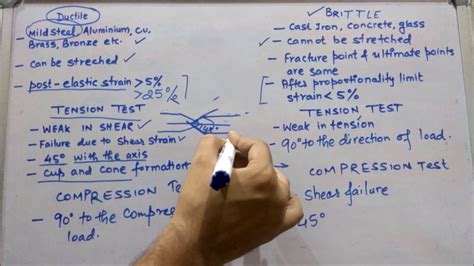 Ductile
Mild Steel, Aluminium, Cu,
Brass, Bronze etc.
- Can be streched
- post-elastic strain > 5%
>25%
TENSION TEST
- WEAK IN SHEAR
- Failure due to Shear strain
- 45° with the axis
- Cup and Cone formation
COMPRESSION TEST
- 90° to the Compre
load.
45°
BRITTLE
- Cast Iron, Concrete, glass
- cannot be stretched
- Fracture point & ultimate points
are same
- After proportionality limit
strain < 5%
TENSION TEST
- Weak in tension
- 90° to the direction of load.
COMPRESSION TEST
Shear failure
45°